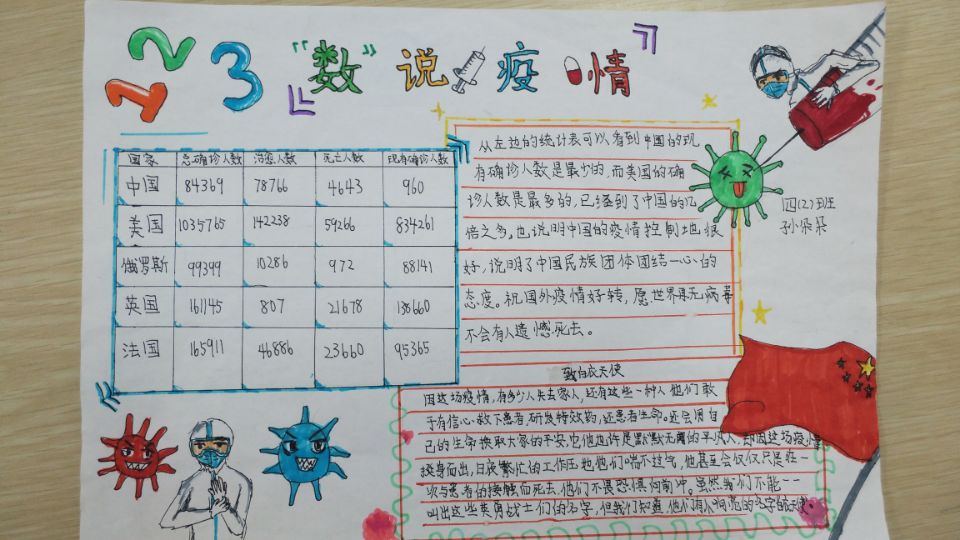 123 “数”说疫情
国家 总确诊人数 治愈人数 死亡人数 现有确诊人数
中国 84369 78766 4643 960
美国 1035765 142238 59266 834261
俄罗斯 99399 10286 972 88141
英国 161145 807 21678 138660
法国 165911 46886 23660 95365
从左边的统计表可以看到中国的现
有确诊人数是最少的,而美国的确
诊人数是最多的,已经到了中国的亿
倍之多。也说明中国的疫情控制地很
好,说明了中国民族团体团结一心的
态度。祝国外疫情好转,愿世界再无病毒
不会有人遗憾死去。
四(2)班
孙朵朵
致白衣天使
因这场疫情,有多少人失去家人,还有这些一种人他们敢
于有信心救下患者,研发特效药,还患者生命。还会用自
己的生命换取大家的平安,也他也许是默默无闻的平凡人,却因这场疫情
挺身而出,日夜繁忙的工作压地他们喘不过气,他甚至会仅仅只是在一
次与患者的接触而死去,他们不畏恐惧向前冲。虽然我们不能一一
叫出这些英勇战士们的名字,但我们知道,他们有个响亮的名字白衣天使。